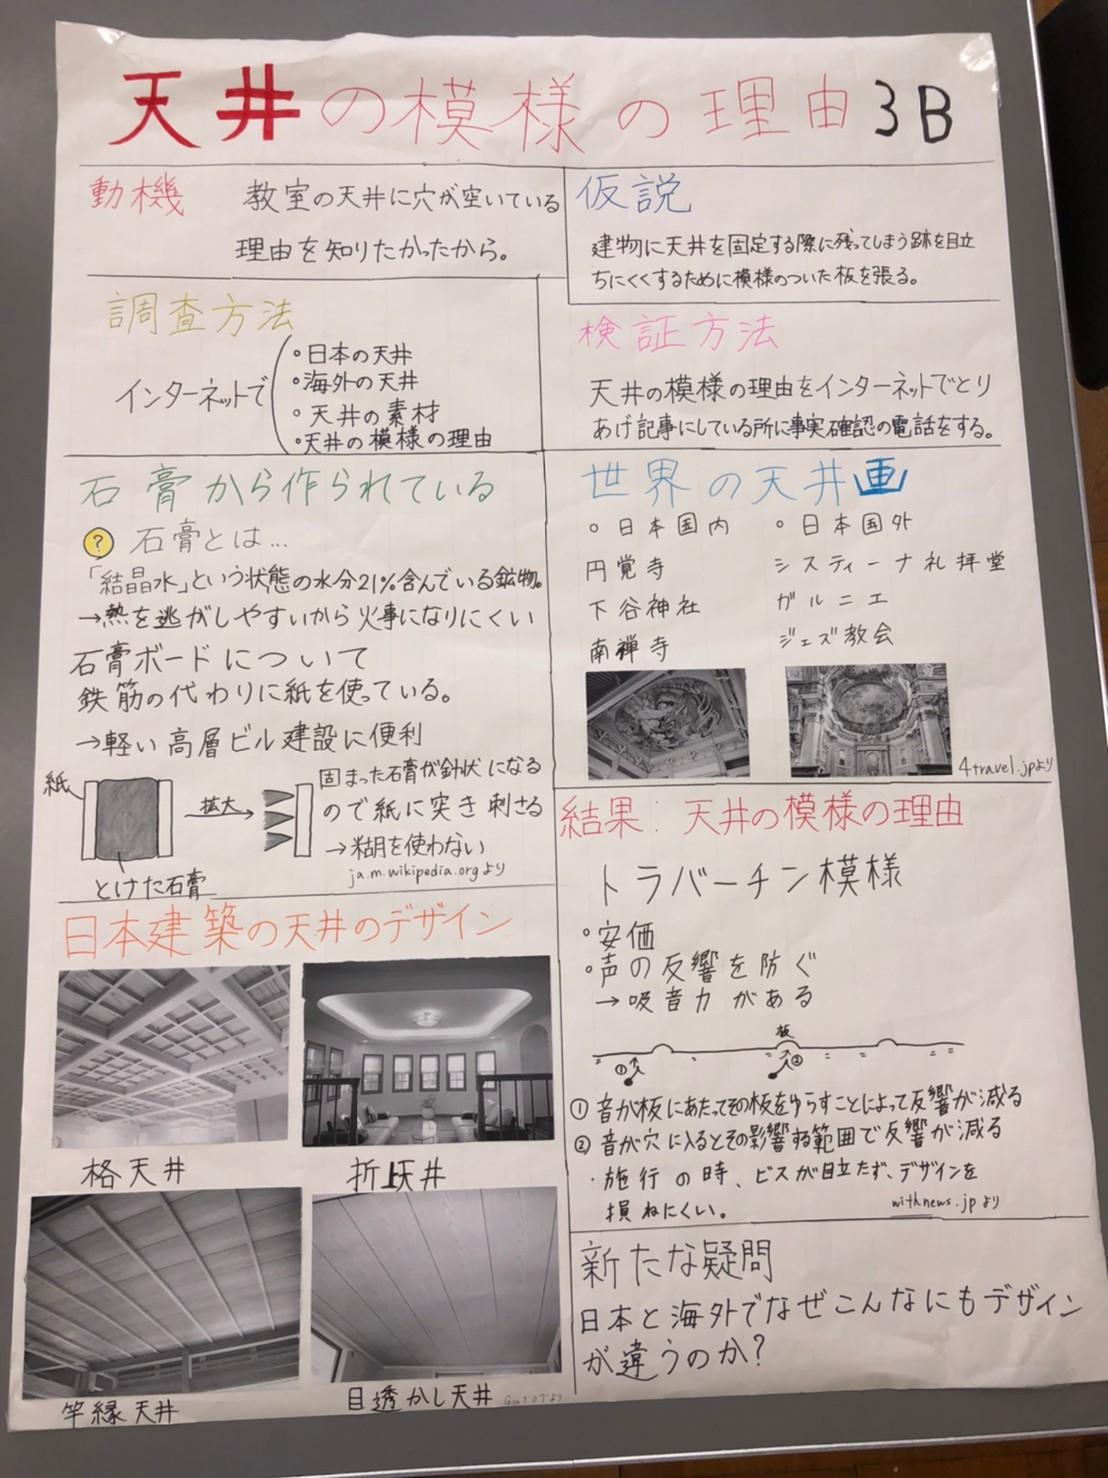 天井の模様の理由 3B
動機
教室の天井に穴が空いている
理由を知りたかったから。
仮説
建物に天井を固定する際に残ってしまう跡を目立
ちにくくするために模様のついた板を張る。
調査方法
インターネットで
・日本の天井
・海外の天井
・天井の素材
・天井の模様の理由
検証方法
天井の模様の理由をインターネットでとり
あげ記事にしている所に事実確認の電話をする。
石膏から作られている
? 石膏とは…
「結晶水」という状態の水分21%含んでいる鉱物。
→熱を逃がしやすいから火事になりにくい
石膏ボードについて
鉄筋の代わりに紙を使っている。
→軽い 高層ビル建設に便利
紙
拡大
とけた石膏
固まった石膏が針状になる
ので紙に突き刺さる
→糊を使わない
ja.m.wikipedia.orgより
世界の天井画
○日本国内
円覚寺
下谷神社
南禅寺
○日本国外
システィーナ礼拝堂
ガルニエ
ジェズ教会
4travel.jpより
日本建築の天井のデザイン
格天井
折上天井
竿縁天井
目透かし天井
結果:天井の模様の理由
トラバーチン模様
○安価
○声の反響を防ぐ
→吸音力がある
板
①
②
①音が板にあたってその板をゆらすことによって反響が減る
②音が穴に入るとその影響する範囲で反響が減る
・施行の時、ビスが目立たず、デザインを
損ねにくい。
withnews.jpより
新たな疑問
日本と海外でなぜこんなにもデザイン
が違うのか?